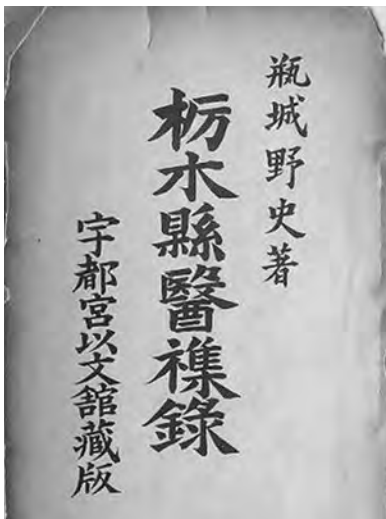 瓶城野史著
栃木縣醫襍錄
宇都宮以文舘藏版